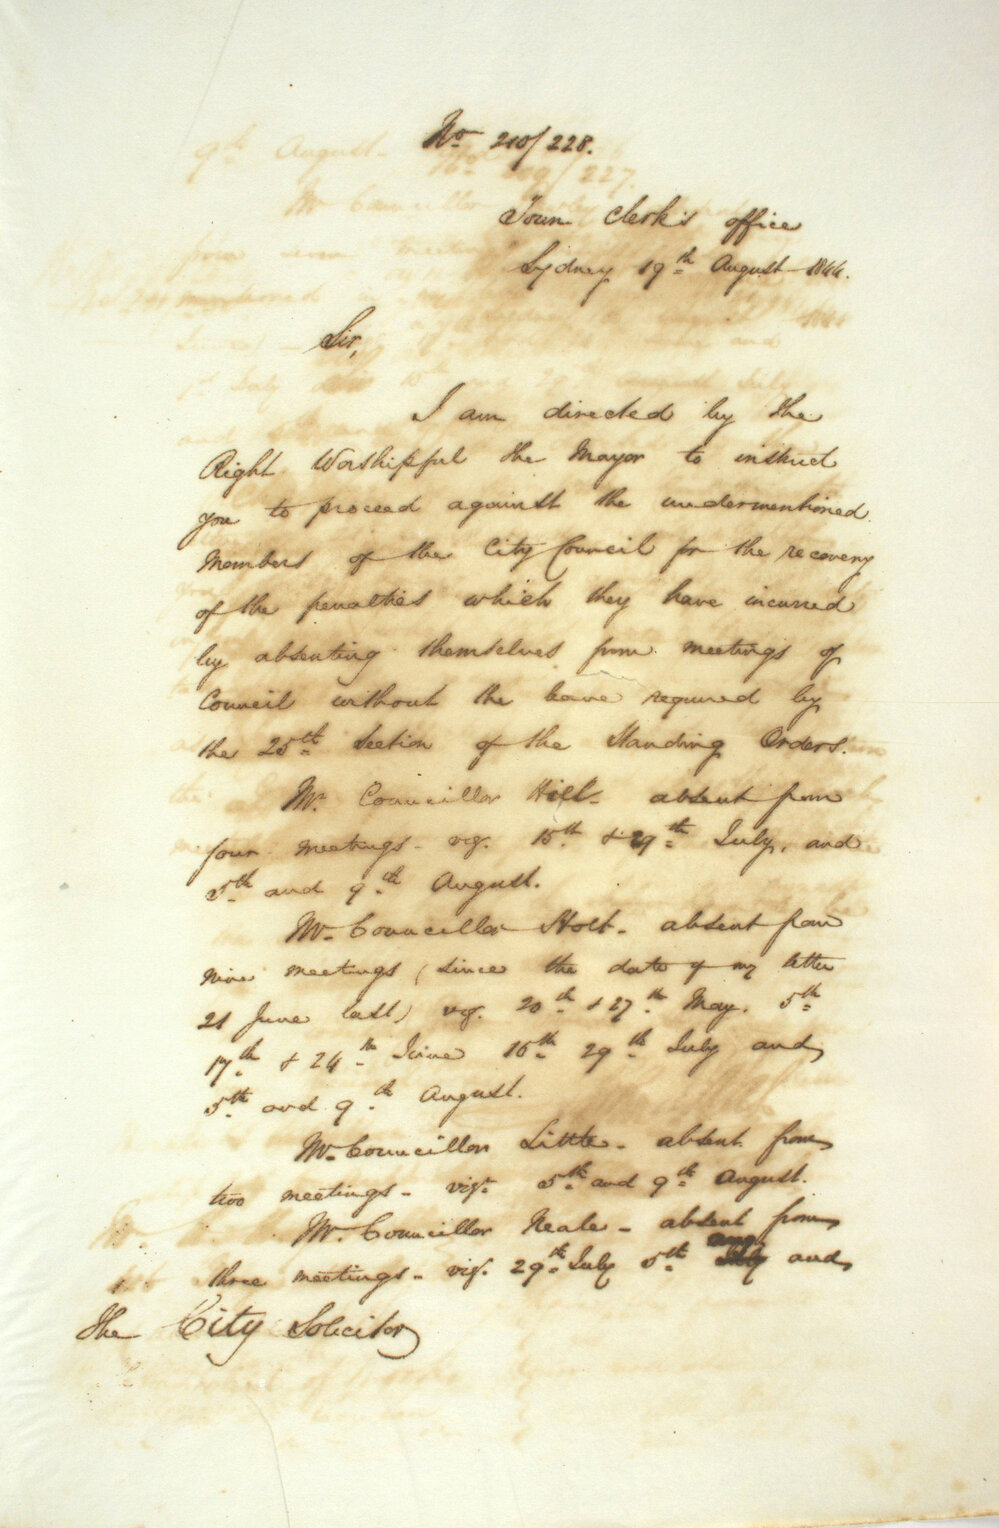 No 210/228.
Town Clerk's office
Sydney 19th August 1844.
Sir,
I am directed by the
Right Worshipful the Mayor to instruct
you to proceed against the undermentioned
Members of the City Council for the recovery
of the penalties which they have incurred
by absenting themselves from meetings of
Council without the leave required by
the 25th Section of the Standing Orders.
Mr. Councillor absent from
four meetings - viz. 15th & 29th July, and
5th and 9th August.
Mr. Councillor Holt - absent from
nine meetings (since the date of my letter
21 June last) viz. 20th & 27th May. 5th
17th & 24th June 29th July and
5th and 9th August.
Mr. Councillor Little - absent from
two meetings - viz. 5th and 9th August.
Mr. Councillor Neale - absent from
three meetings - viz. 29th July 5th Aug and
The City Solicitor